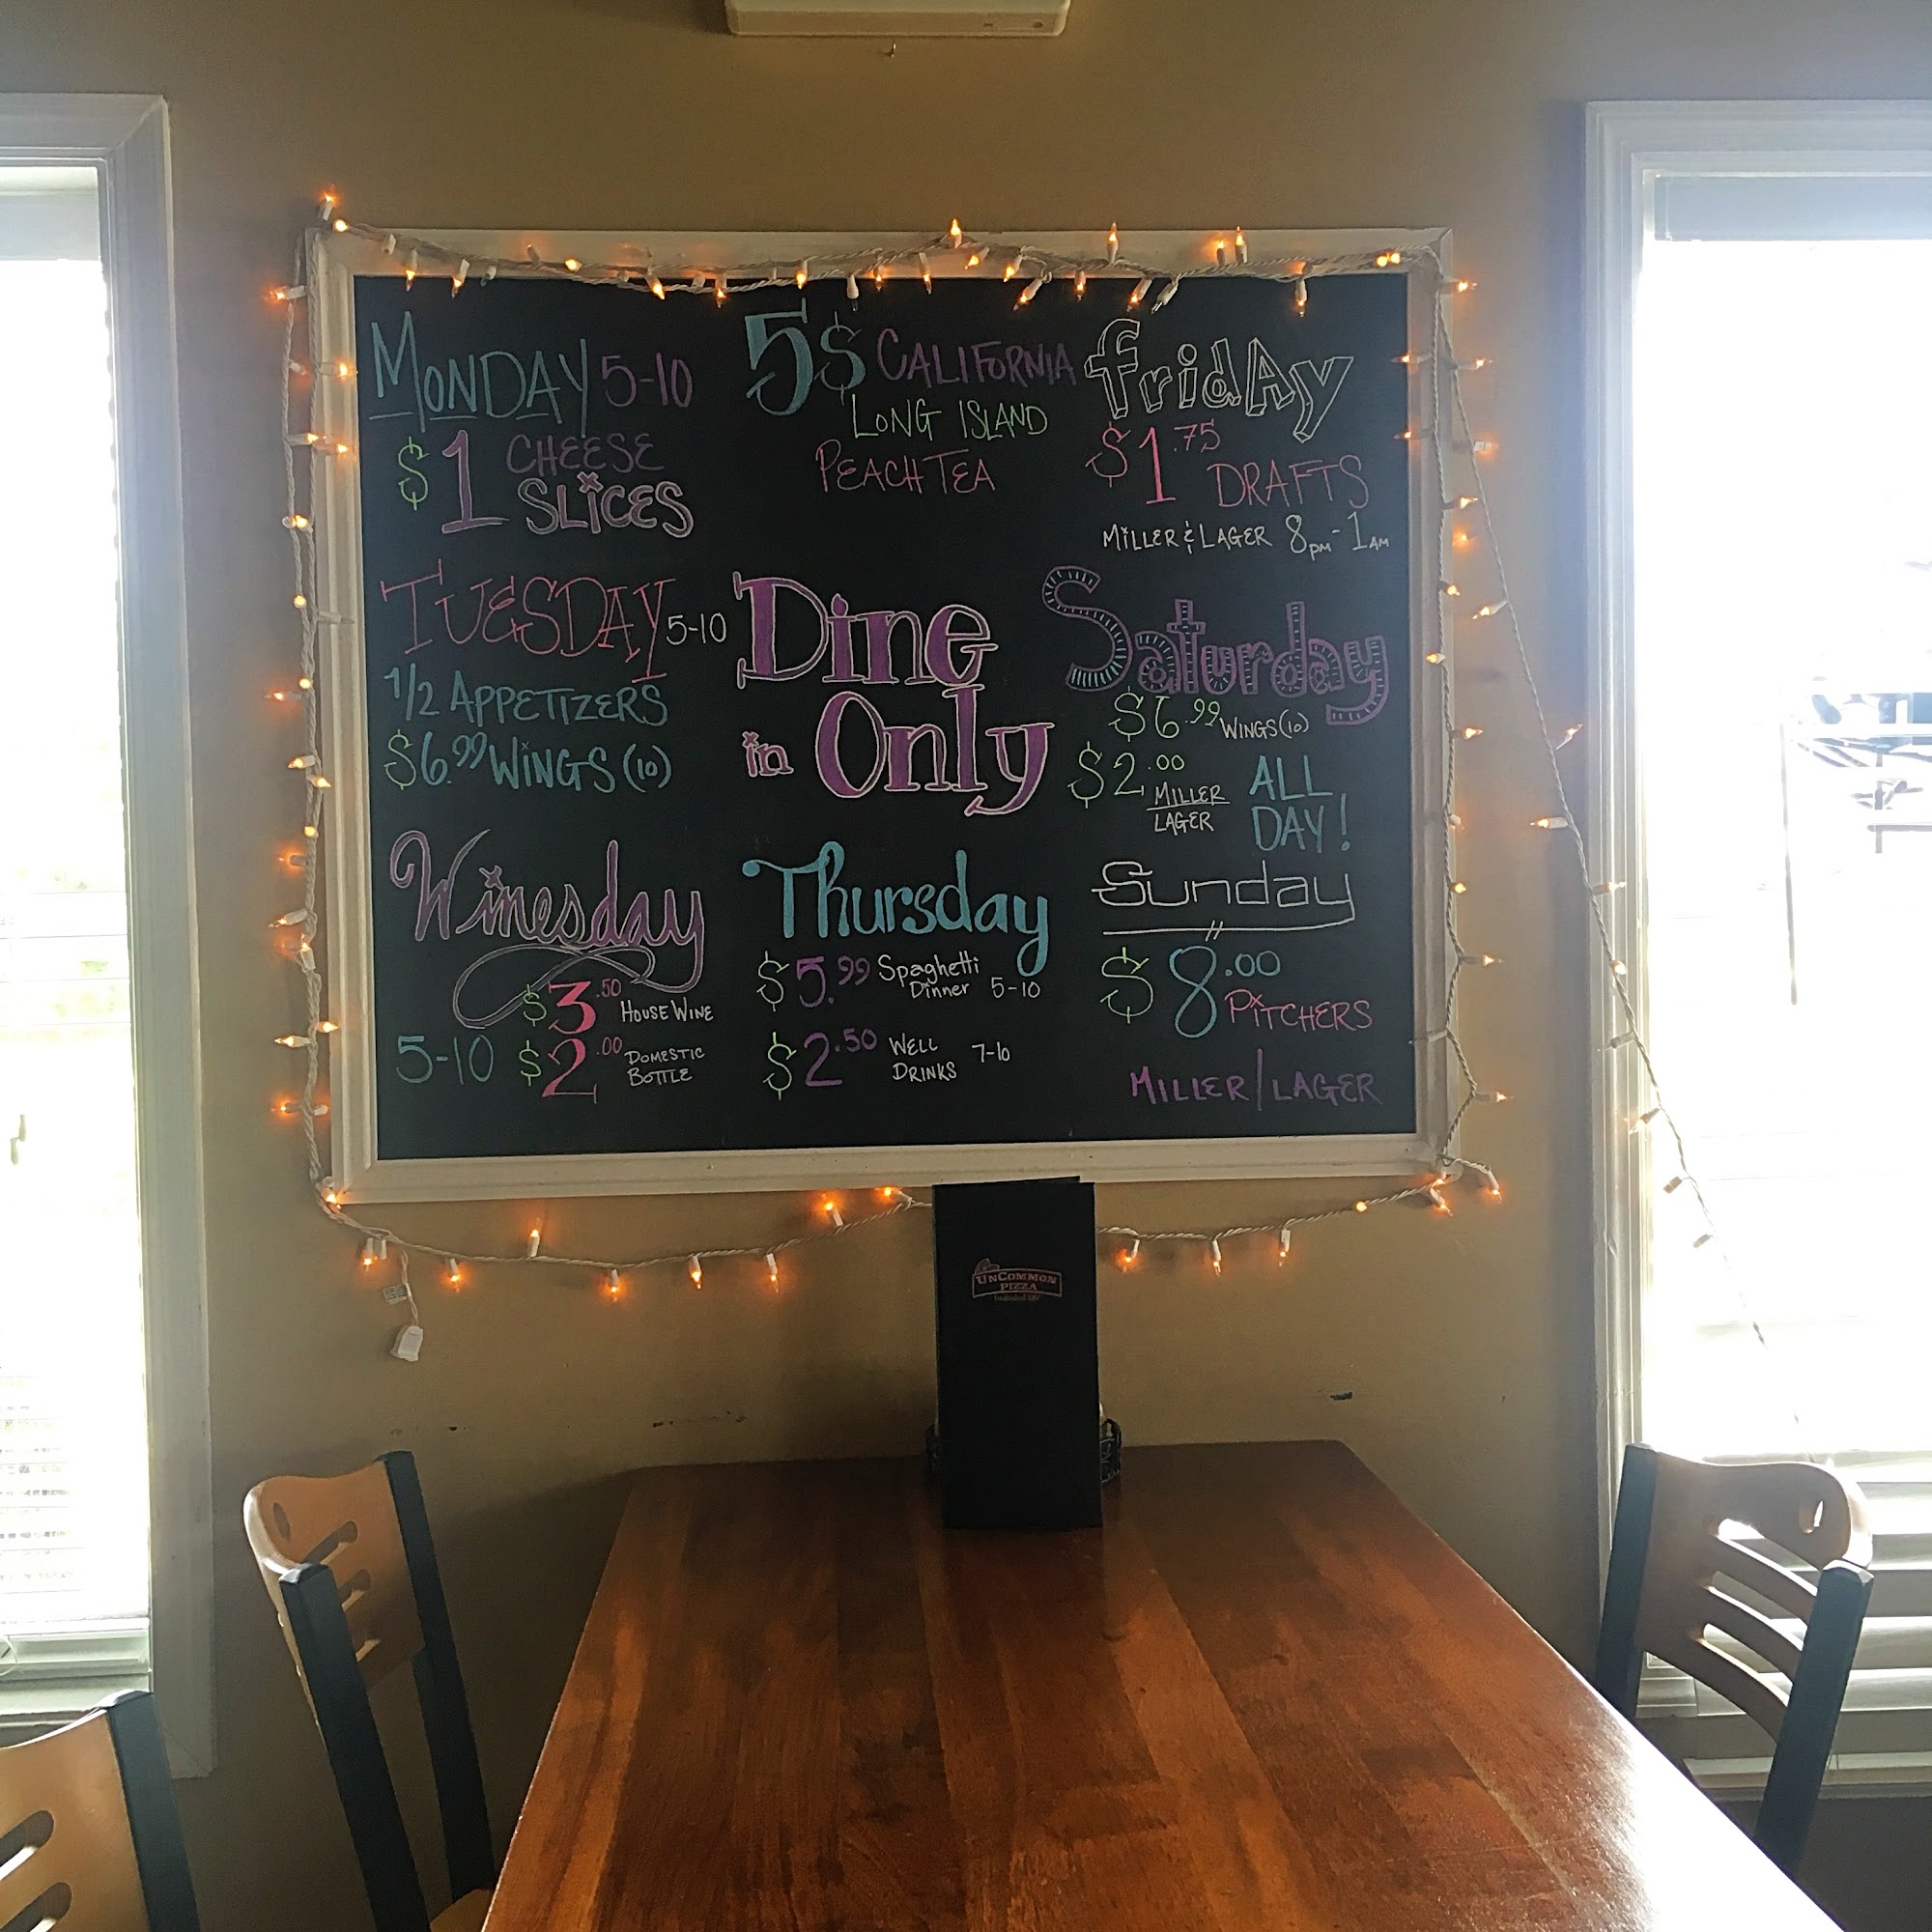 MONDAY 5-10
$1 CHEESE
SLICES
TUESDAY 5-10
1/2 APPETIZERS
$6.99 WINGS (10)
Winesday
$3.50 HOUSE WINE
5-10 $2.00 DOMESTIC
BOTTLE
5$ CALIFORNIA
LONG ISLAND
PEACH TEA
Dine
in Only
Thursday
$5.99 Spaghetti
Dinner 5-10
$2.50 WELL
DRINKS 7-10
fridAy
$1.75
DRAFTS
MiLLER & LAGER 8PM-1AM
Saturday
$6.99 WINGS (10)
$2.00
MILLER
LAGER
ALL
DAY!
Sunday
$8.00
PiTCHERS
MILLER/LAGER
UNCOMMON
PIZZA